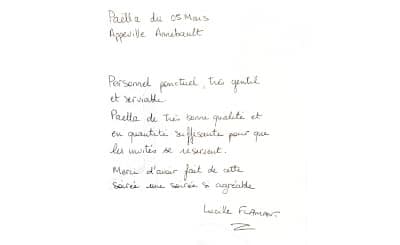 Paëlla du 05 Mars
Appeville Annebault
Personnel ponctuel, très gentil
et serviable
Paëlla de très bonne qualité et
en quantité suffisante pour que
les invités se reservent.
Merci d'avoir fait de cette
soirée une soirée si agréable
Lucille FLAMANT